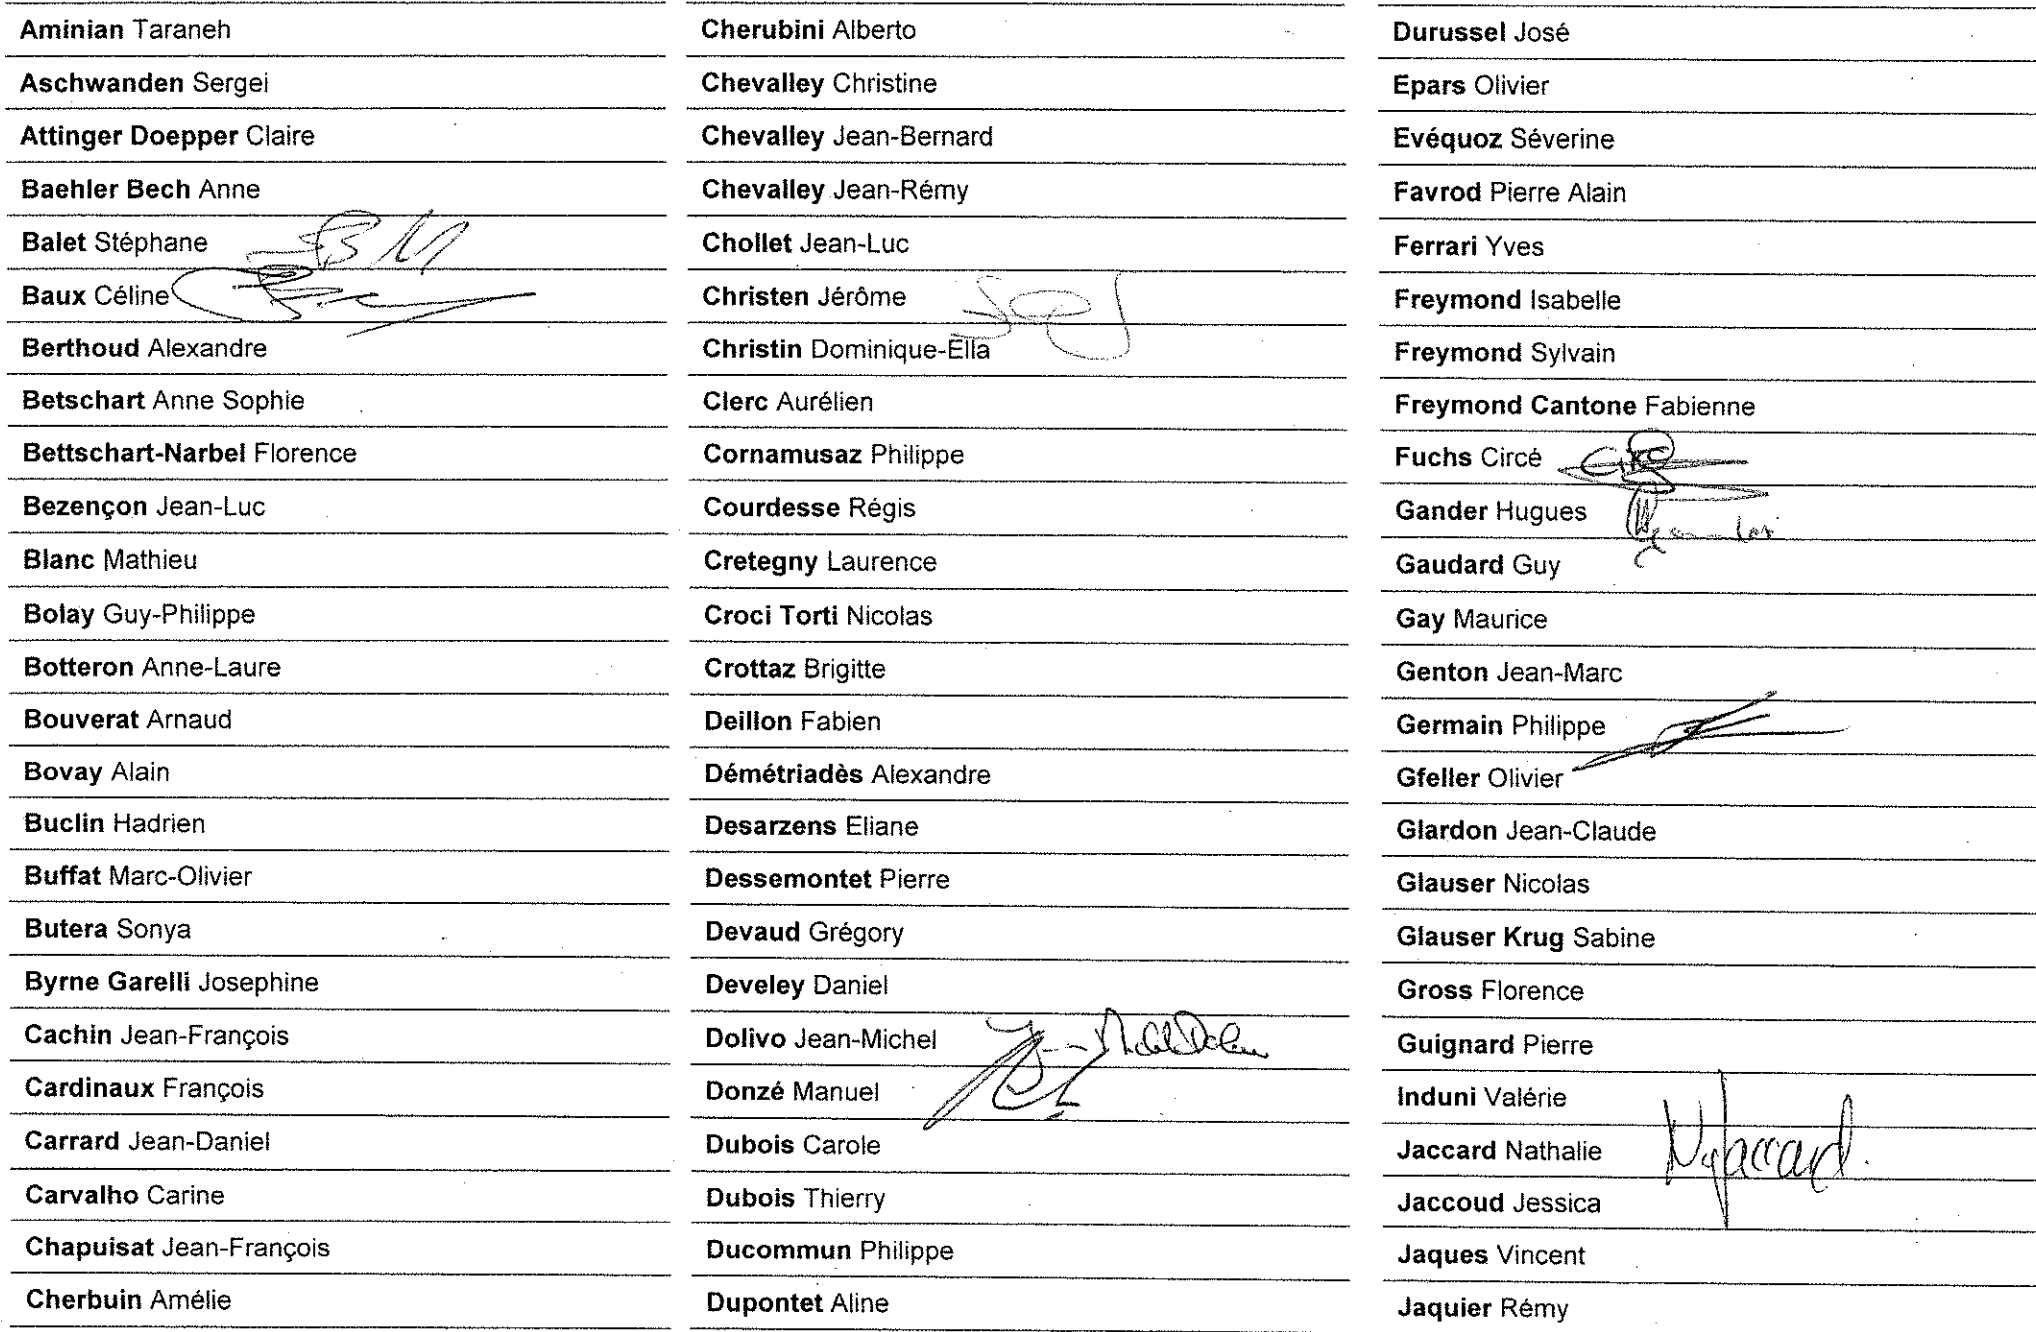 Aminian Taraneh
Aschwanden Sergei
Attinger Doepper Claire
Baehler Bech Anne
Balet Stéphane
Baux Céline
Berthoud Alexandre
Betschart Anne Sophie
Bettschart-Narbel Florence
Bezençon Jean-Luc
Blanc Mathieu
Bolay Guy-Philippe
Botteron Anne-Laure
Bouverat Arnaud
Bovay Alain
Buclin Hadrien
Buffat Marc-Olivier
Butera Sonya
Byrne Garelli Josephine
Cachin Jean-François
Cardinaux François
Carrard Jean-Daniel
Carvalho Carine
Chapuisat Jean-François
Cherbuin Amélie
Cherubini Alberto
Chevalley Christine
Chevalley Jean-Bernard
Chevalley Jean-Rémy
Chollet Jean-Luc
Christen Jérôme
Christin Dominique-Ella
Clerc Aurélien
Cornamusaz Philippe
Courdesse Régis
Cretegny Laurence
Croci Torti Nicolas
Crottaz Brigitte
Deillon Fabien
Démétriadès Alexandre
Desarzens Eliane
Dessemontet Pierre
Devaud Grégory
Develey Daniel
Dolivo Jean-Michel
Donzé Manuel
Dubois Carole
Dubois Thierry
Ducommun Philippe
Dupontet Aline
Durussel José
Epars Olivier
Evéquoz Séverine
Favrod Pierre Alain
Ferrari Yves
Freymond Isabelle
Freymond Sylvain
Freymond Cantone Fabienne
Fuchs Circé
Gander Hugues
Gaudard Guy
Gay Maurice
Genton Jean-Marc
Germain Philippe
Gfeller Olivier
Glardon Jean-Claude
Glauser Nicolas
Glauser Krug Sabine
Gross Florence
Guignard Pierre
Induni Valérie
Jaccard Nathalie NJaccard.
Jaccoud Jessica
Jaques Vincent
Jaquier Rémy